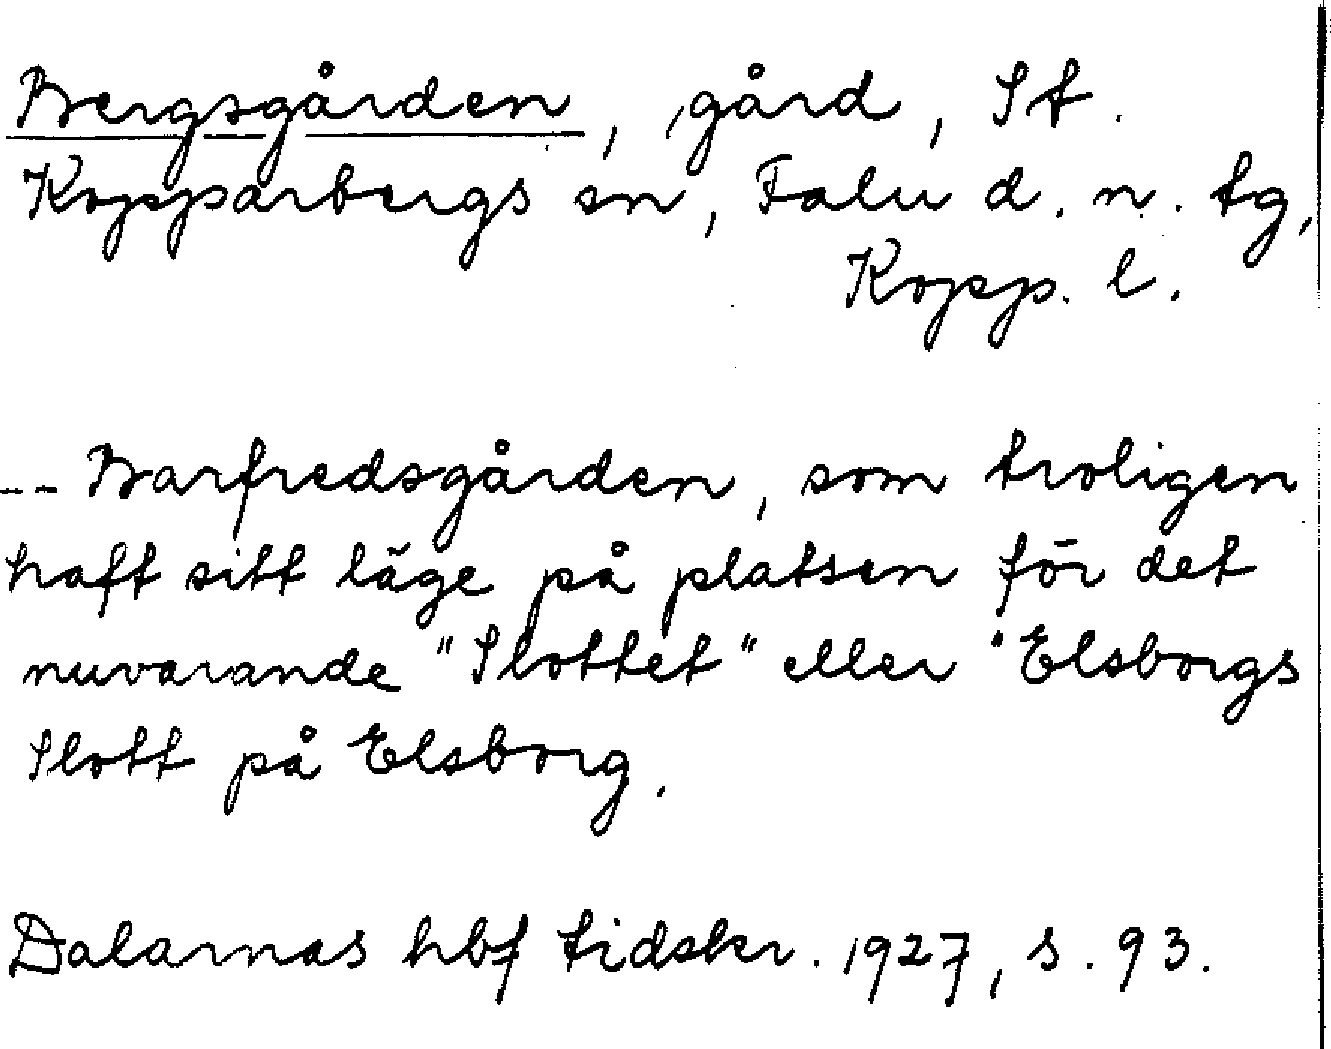 Bergsgården, gård, St.
Kopparbergs sn, Falu d. n. tg,
Kopp. l.
-- Barfredsgården, som troligen
haft sitt läge på platsen för det
nuvarande "Slottet" eller "Elsborgs
Slott på Elsborg.
Dalarnas hbf tidskr. 1927, s. 93.